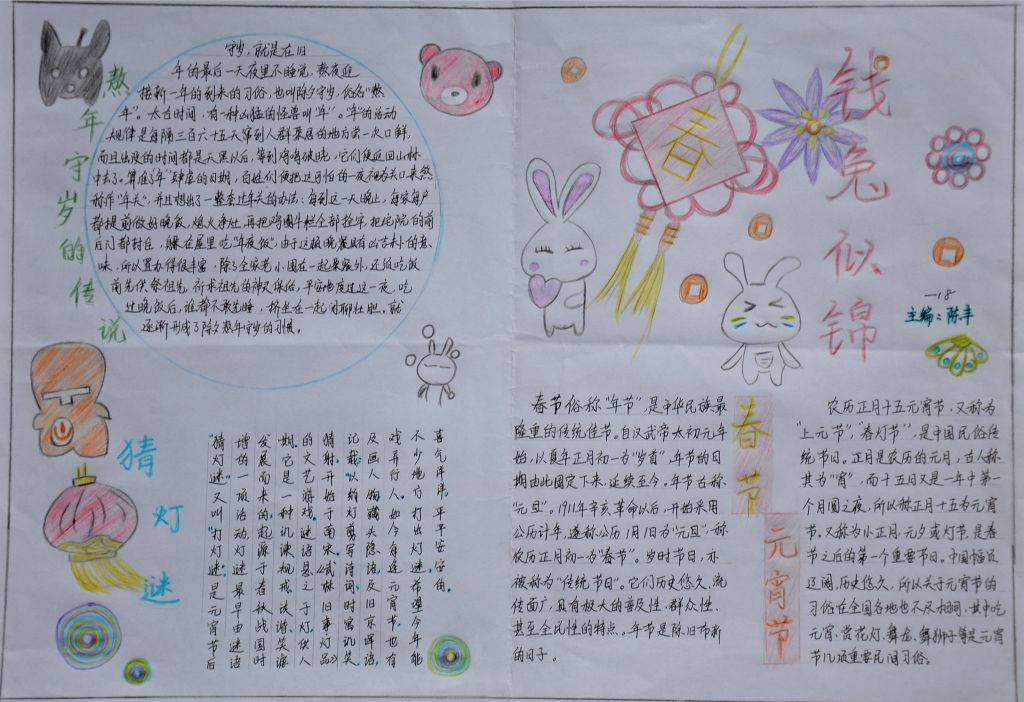 熬年守岁的传说
守岁，就是在旧
年的最后一天夜里不睡觉，熬夜迎
接新一年的到来的习俗，也叫除夕守岁，俗名“熬
年”。太古时间，有一种凶猛的怪兽叫“年”。“年”的活动
规律是每隔三百六十五天窜到人群聚居的地方尝一次口鲜，
而且出没的时间都是天黑以后，等到鸡鸣破晓，它们便返回山林
中去了。算准了“年”肆虐的日期，百姓们便把这可怕的一夜视为关口来熬
称作“年关”，并且想出了一整套过年关的办法：每到这一天晚上，每家每户
都提前做好晚饭，熄火净灶，再把鸡圈牛栏全部拴牢，把宅院的前
后门都封住，躲在屋里吃“年夜饭”，由于这顿晚餐具有凶吉未卜的意
味，所以置办得很丰富，除了全家老小围在一起聚餐外，还须吃饭
前先供祭祖先，祈求祖先的神灵保佑，平安地度过这一夜，吃
过晚饭后，谁都不敢先睡，挤坐在一起闲聊壮胆。就
逐渐形成了除夕熬年守岁的习惯。
猜灯谜
“猜灯谜”又叫“打灯谜”是元宵节后
增的一项活动，灯谜最早由谜语
发展而来的，起源于春秋战国时
期。它是一种讥谏规戒谈谐笑谑
的文艺游戏。谜语悬之于灯，供人
猜射，开始于南宋。《武林旧事灯品》
记载：“以绢灯剪写诗词，时寓讥笑，
及画人物，藏头隐语，及旧京诨语，
戏弄行人。”如今每逢元宵节，也有
不少地方打出灯谜，希望今年能
喜气洋洋，平平安安的。
春
钱兔似锦
一18
主编：陈丰
春节
春节俗称“年节”，是中华民族最
隆重的传统佳节。自汉武帝太初元年
始，以夏年正月初一为“岁首”，年节的日
期由此固定下来，延续至今。年节古称
“元旦”。1911年辛亥革命以后，开始采用
公历计年，遂称公历1月1日为“元旦”，称
农历正月初一为“春节”。岁时节日，亦
被称为“传统节日”。它们历史悠久、流
传面广，具有极大的普及性、群众性、
甚至全民性的特点。年节是除旧布新
的日子。
元宵节
农历正月十五元宵节，又称为
“上元节”，“春灯节”，是中国民俗传
统节日。正月是农历的元月，古人称
其为“宵”，而十五日又是一年中第一
个月圆之夜，所以称正月十五为元宵
节。又称为小正月、元夕或灯节，是春
节之后的第一个重要节日。中国幅员
辽阔，历史悠久，所以关于元宵节的
习俗在全国各地也不尽相同，其中吃
元宵、赏花灯、舞龙、舞狮子等是元宵
节几项重要民间习俗。